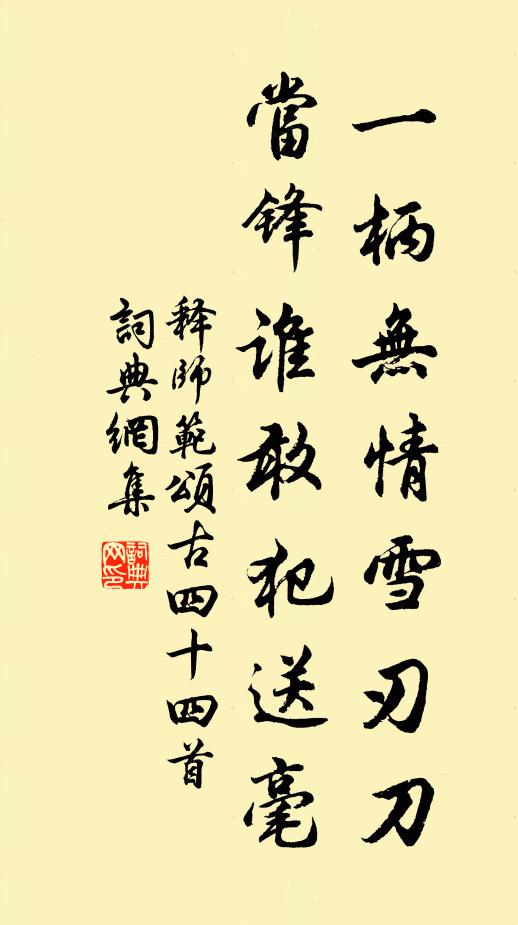 一柄無情雪刃刀
當锋谁敢犯送毫
释師範頌古四十四首
詞典網集
詞典网印